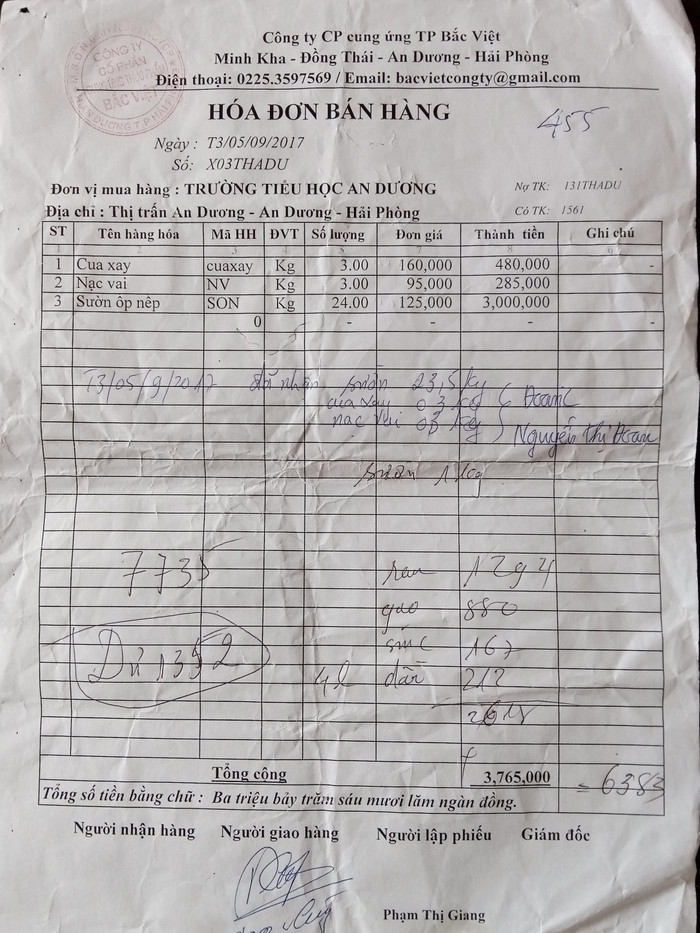 CÔNG TY
CỔ PHẦN
BẮC VIỆT
Công ty CP cung ứng TP Bắc Việt
Minh Kha - Đồng Thái - An Dương - Hải Phòng
Điện thoại: 0225.3597569 / Email: bacvietcongty@gmail.com
HÓA ĐƠN BÁN HÀNG
455
Ngày : T3/05/09/2017
Số: X03THADU
Đơn vị mua hàng : TRƯỜNG TIỂU HỌC AN DƯƠNG Nợ TK: 131THADU
Địa chỉ : Thị trấn An Dương - An Dương - Hải Phòng Có TK: 1561
ST Tên hàng hóa Mã HH ĐVT Số lượng Đơn giá Thành tiền Ghi chú
1 Cua xay cuaxay Kg 3.00 160,000 480,000 -
2 Nạc vai NV Kg 3.00 95,000 285,000 -
3 Sườn ôp nêp SON Kg 24.00 125,000 3,000,000 -
0 - - - -
T3/05/9/2017 đã nhận sườn 23,5 kg
cua xay 03 kg Doan
nạc vai 03 kg Nguyễn Thị Doan
sườn 1 kg
7735 rau 1294
gạo 880
167
Dư 1352 4l dầu 212
Tổng cộng 3,765,000 = 6383
Tổng số tiền bằng chữ : Ba triệu bảy trăm sáu mươi lăm ngàn đồng.
Người nhận hàng Người giao hàng Người lập phiếu Giám đốc
Phạm Thị Giang